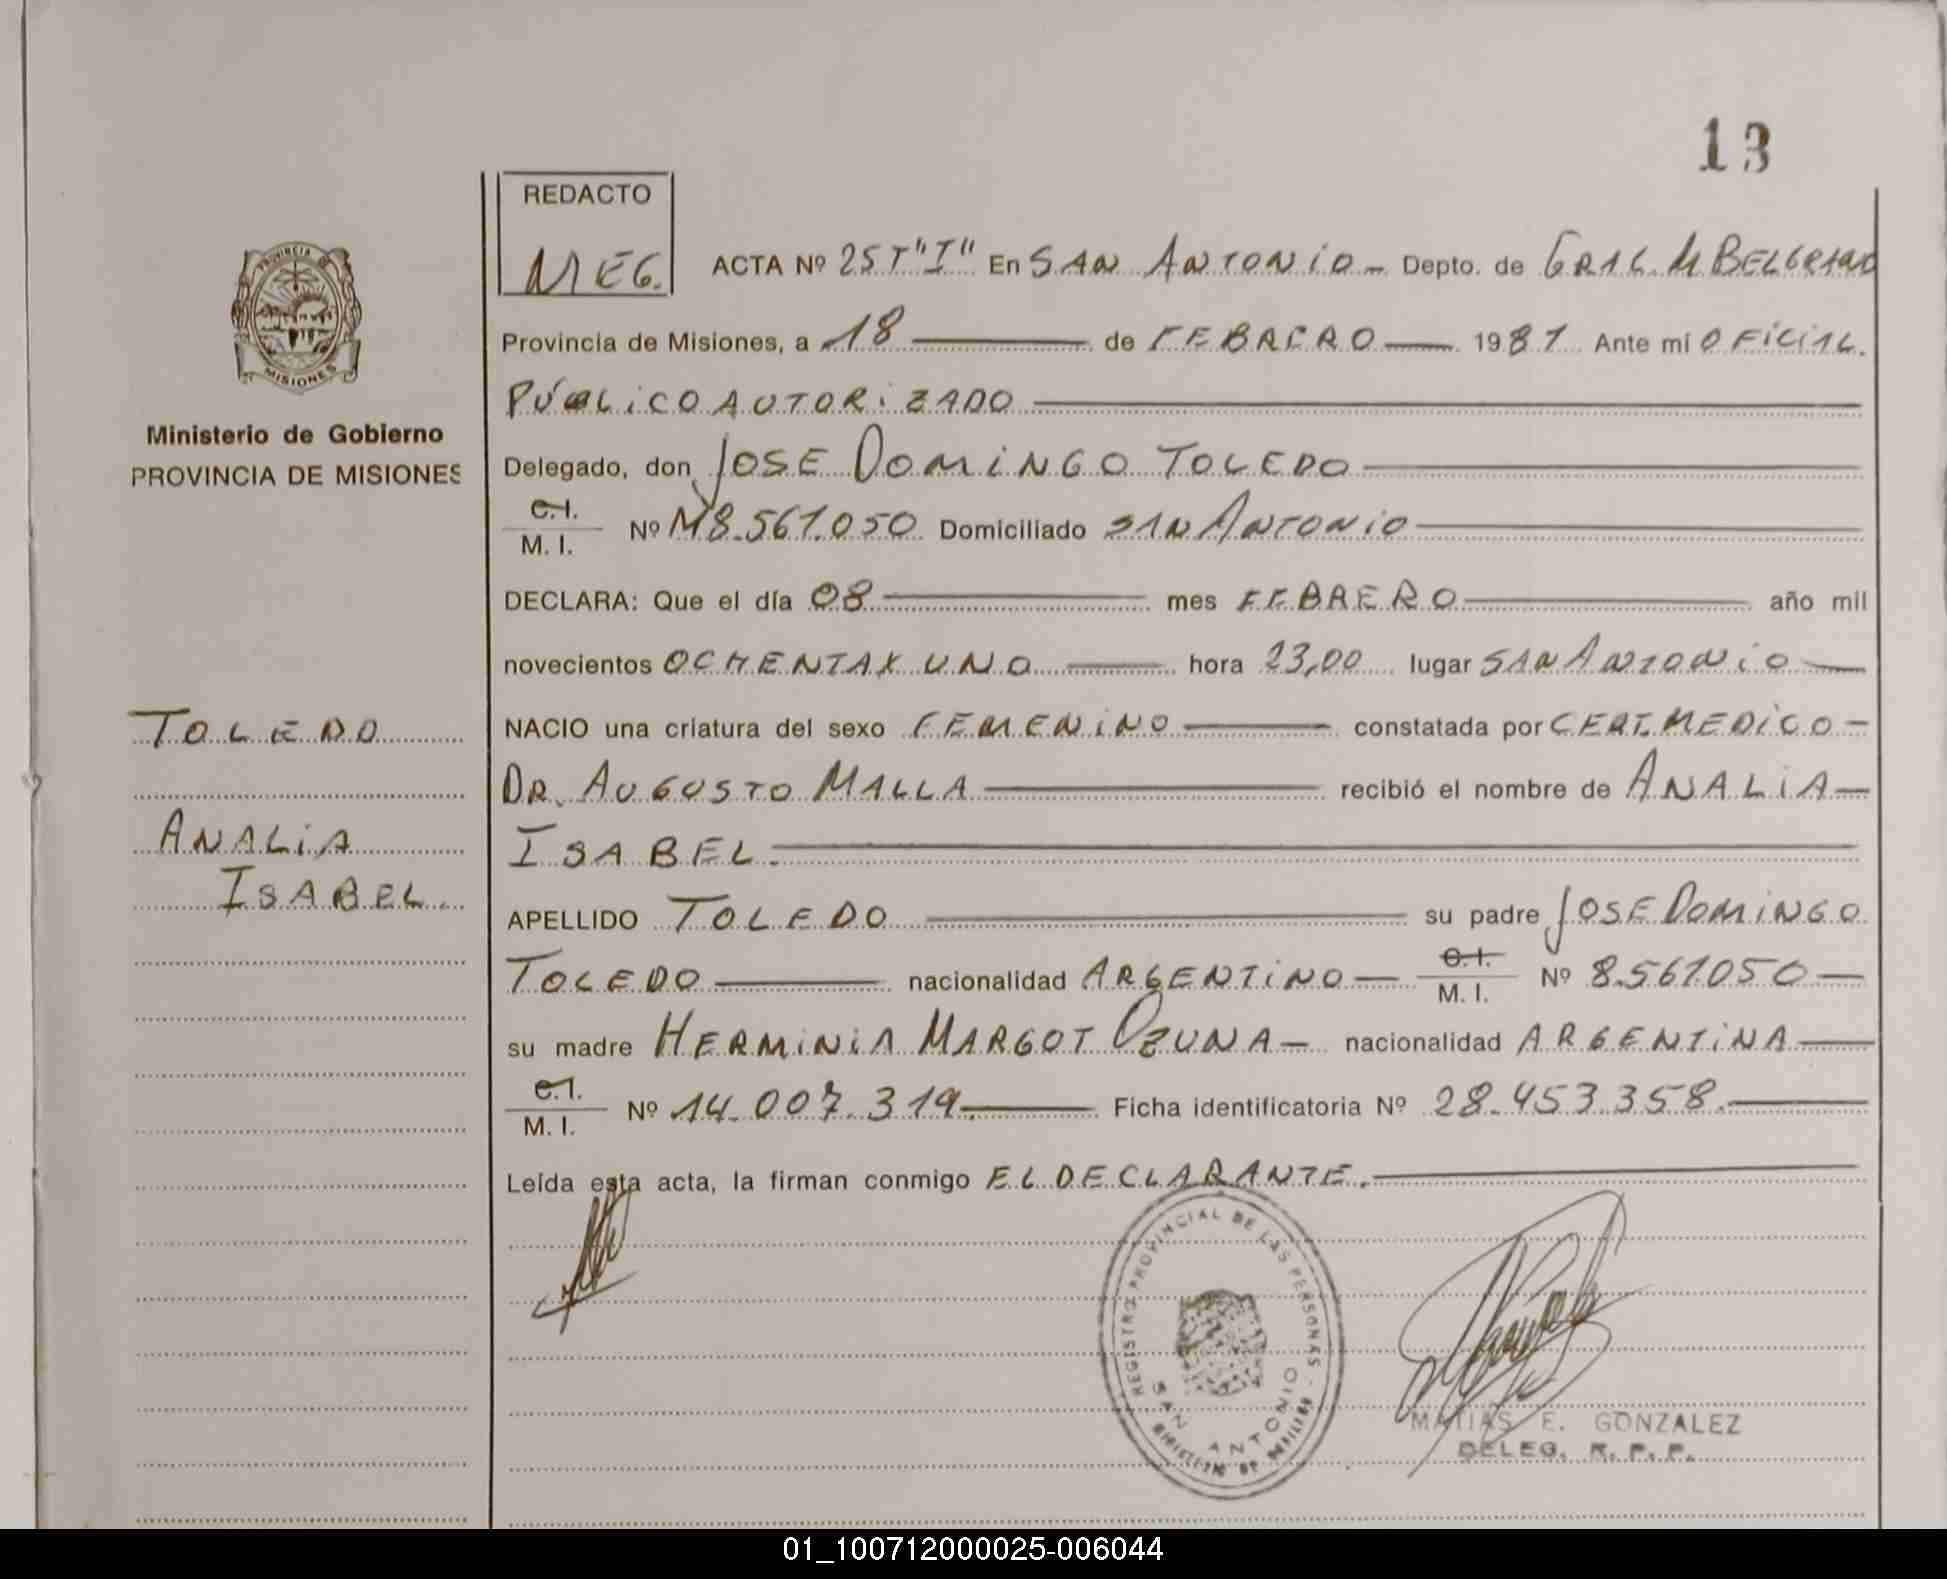 13
REDACTO
MEG.
ACTA Nº 25 T"I" En SAN ANTONIO Depto. de GRAL M BELGRANO
Provincia de Misiones, a 18 de FEBRERO 1981 Ante mi OFICIAL
PÚBLICO AUTORIZADO
Delegado, don JOSE DOMINGO TOLEDO
C.I.
M. I. Nº M8.561.050 Domiciliado SAN ANTONIO
DECLARA: Que el día 08 mes FEBRERO año mil
novecientos OCHENTAY UNO hora 23,00 lugar SAN ANTONIO
NACIO una criatura del sexo FEMENINO constatada por CERT. MEDICO
DR. AUGUSTO MALLA recibió el nombre de ANALIA
ISABEL.
APELLIDO TOLEDO su padre JOSE DOMINGO
TOLEDO nacionalidad ARGENTINO C.I.
M. I. Nº 8.561.050
su madre HERMINIA MARGOT OZUNA nacionalidad ARGENTINA
C.I.
M. I. Nº 14.007.319. Ficha identificatoria Nº 28.453.358.
Leída esta acta, la firman conmigo EL DECLARANTE.
PROVINCIA DE
MISIONES
Ministerio de Gobierno
PROVINCIA DE MISIONES
TOLEDO
ANALIA
ISABEL.
REGISTRO PROVINCIAL DE LAS PERSONAS
SAN ANTONIO
MATIAS E. GONZALEZ
DELEG. R. P. P.
01_100712000025-006044